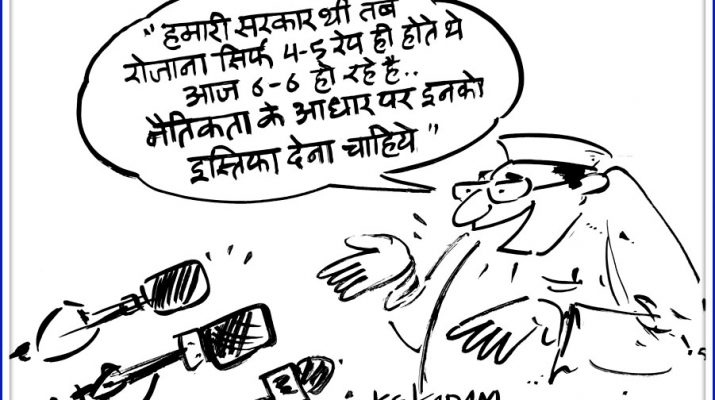 "हमारी सरकार थी तब
रोजाना सिर्फ 4-5 रेप ही होते थे
आज 6-6 हो रहे है..
नैतिकता के आधार पर इनको
इस्तिका देना चाहिये"